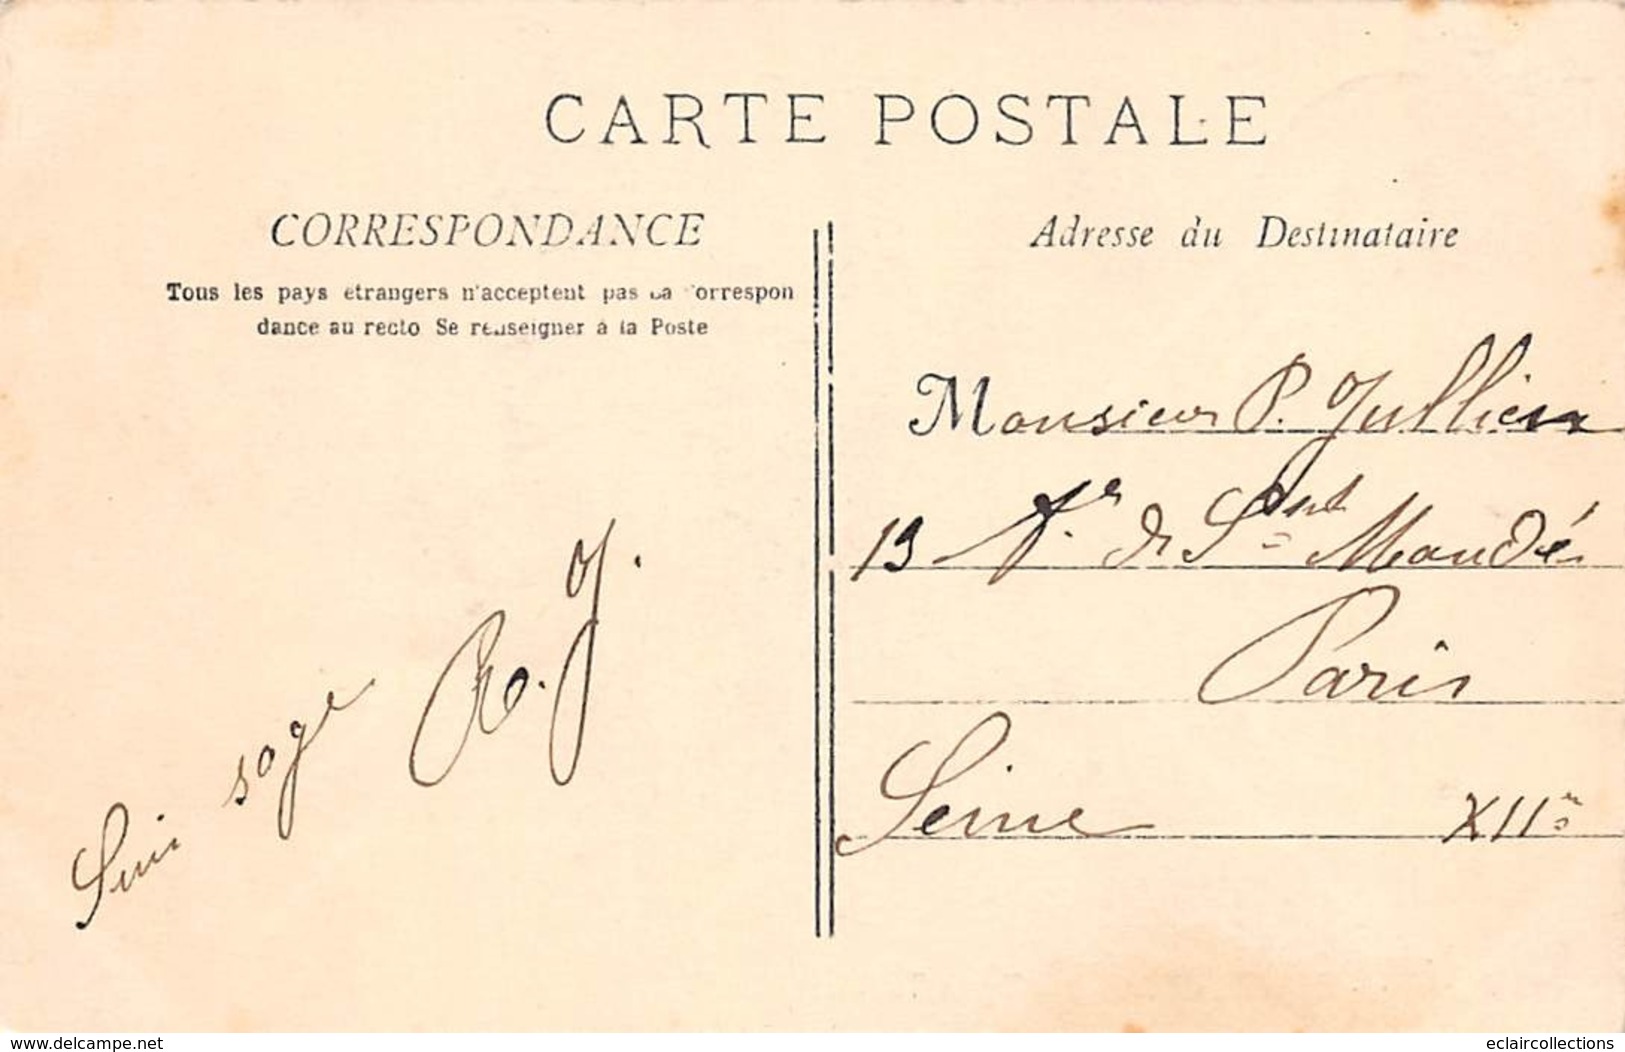 CARTE POSTALE
CORRESPONDANCE
Tous les pays etrangers n'acceptent pas la Correspon
dance au recto Se renseigner à la Poste
Suis sage R. J.
Adresse du Destinataire
Monsieur P. Jullien
13 Ar. de Saint Mandé
Paris
Seine XIIe
www.delcampe.net
eclaircollections